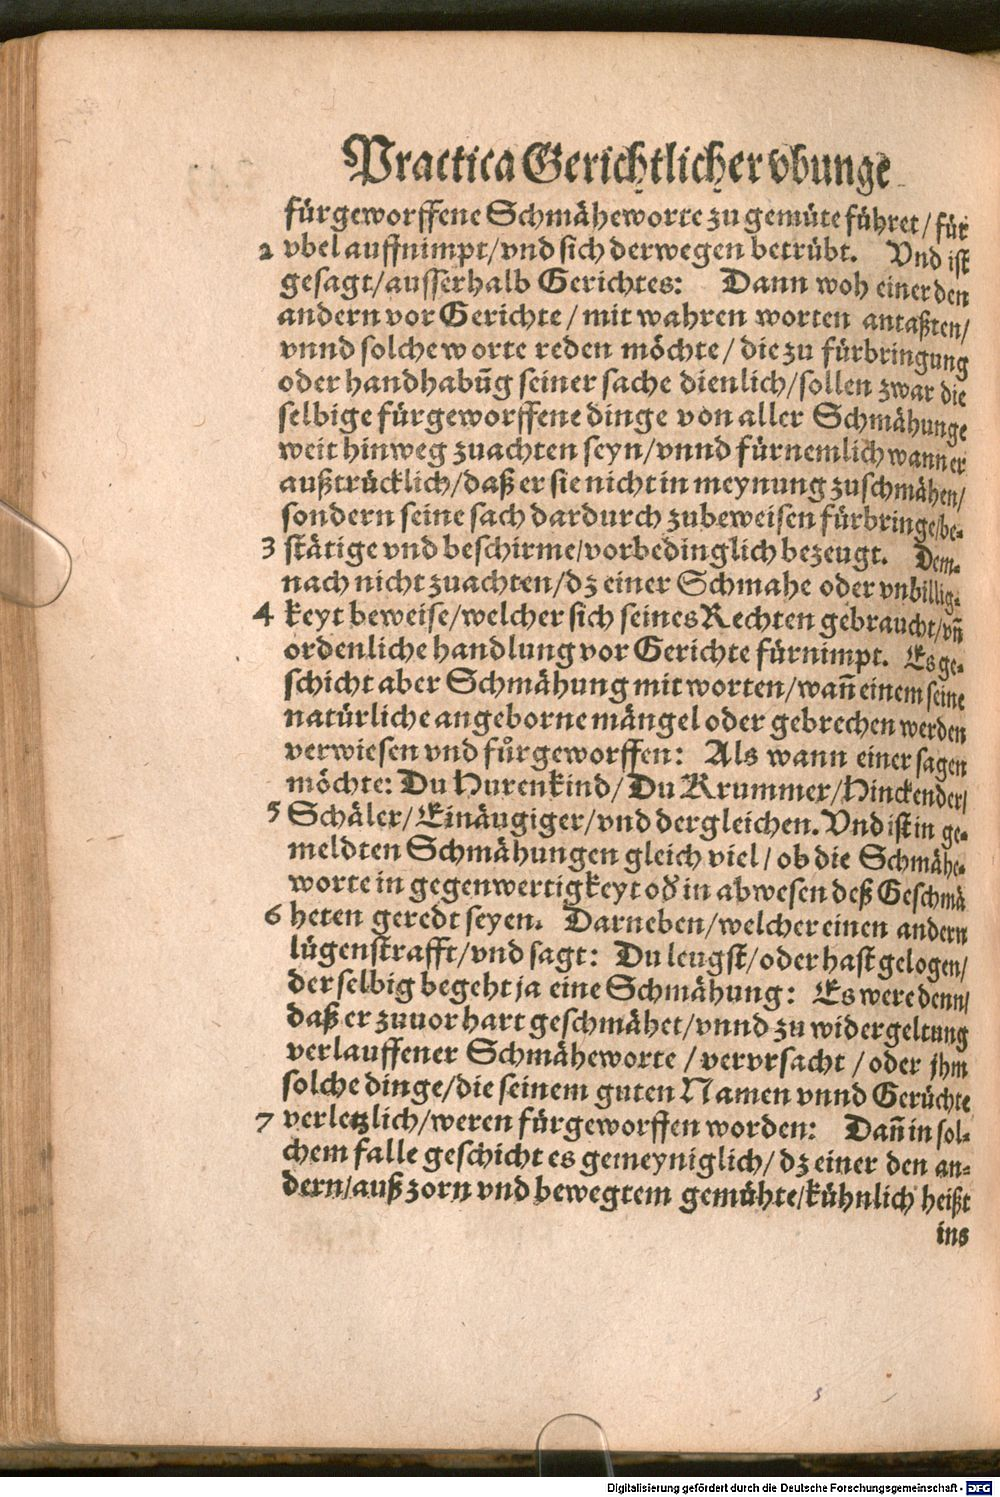 Practica Gerichtlicher vbunge
fürgeworffene Schmäheworte zu gemüte führet / für
2 vbel auffnimpt / vnd sich derwegen betrübt. Vnd ist
gesagt / ausserhalb Gerichtes: Dann woh einer den
andern vor Gerichte / mit wahren worten antaßten /
vnnd solche worte reden möchte / die zu fürbringung
oder handhabũg seiner sache dienlich / sollen zwar die
selbige fürgeworffene dinge von aller Schmähunge
weit hinweg zuachten seyn / vnnd fürnemlich wann er
außtrücklich / daß er sie nicht in meynung zuschmähen /
sondern seine sach dardurch zubeweisen fürbringe / be-
3 stätige vnd beschirme / vorbedinglich bezeugt. Dem-
nach nicht zuachten / dz einer Schmahe oder vnbillig-
4 keyt beweise / welcher sich seines Rechten gebraucht / vñ
ordenliche handlung vor Gerichte fürnimpt. Es ge-
schicht aber Schmähung mit worten / wañ einem seine
natürliche angeborne mängel oder gebrechen werden
verwiesen vnd fůrgeworffen: Als wann einer sagen
möchte: Du Hurenkind / Du Krummer / Hinckender /
5 Schäler / Einäugiger / vnd dergleichen. Vnd ist in ge-
meldten Schmähungen gleich viel / ob die Schmähe-
worte in gegenwertigkeyt oď in abwesen deß Geschmä
6 heten geredt seyen. Darneben / welcher einen andern
lügenstrafft / vnd sagt: Du leugst / oder hast gelogen /
der selbig begeht ja eine Schmähung: Es were denn /
daß er zuuor hart geschmähet / vnnd zu widergeltung
verlauffener Schmäheworte / vervrsacht / oder jhm
solche dinge / die seinem guten Namen vnnd Gerüchte
7 verletzlich / weren fürgeworffen worden: Dañ in sol-
chem falle geschicht es gemeyniglich / dz einer den an-
dern / auß zorn vnd bewegtem gemühte / kühnlich heißt
ins
Digitalisierung gefördert durch die Deutsche Forschungsgemeinschaft - DFG